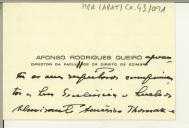 MPR (APAT) Cx.43/091
AFONSO RODRIGUES QUEIRÓ apresen-
DIRECTOR DA FACULDADE DE DIREITO DE COIMBRA
ta os seus respeitosos cumprimen-
tos a Sua Excelência o Senhor
Almirante Américo Thomaz e